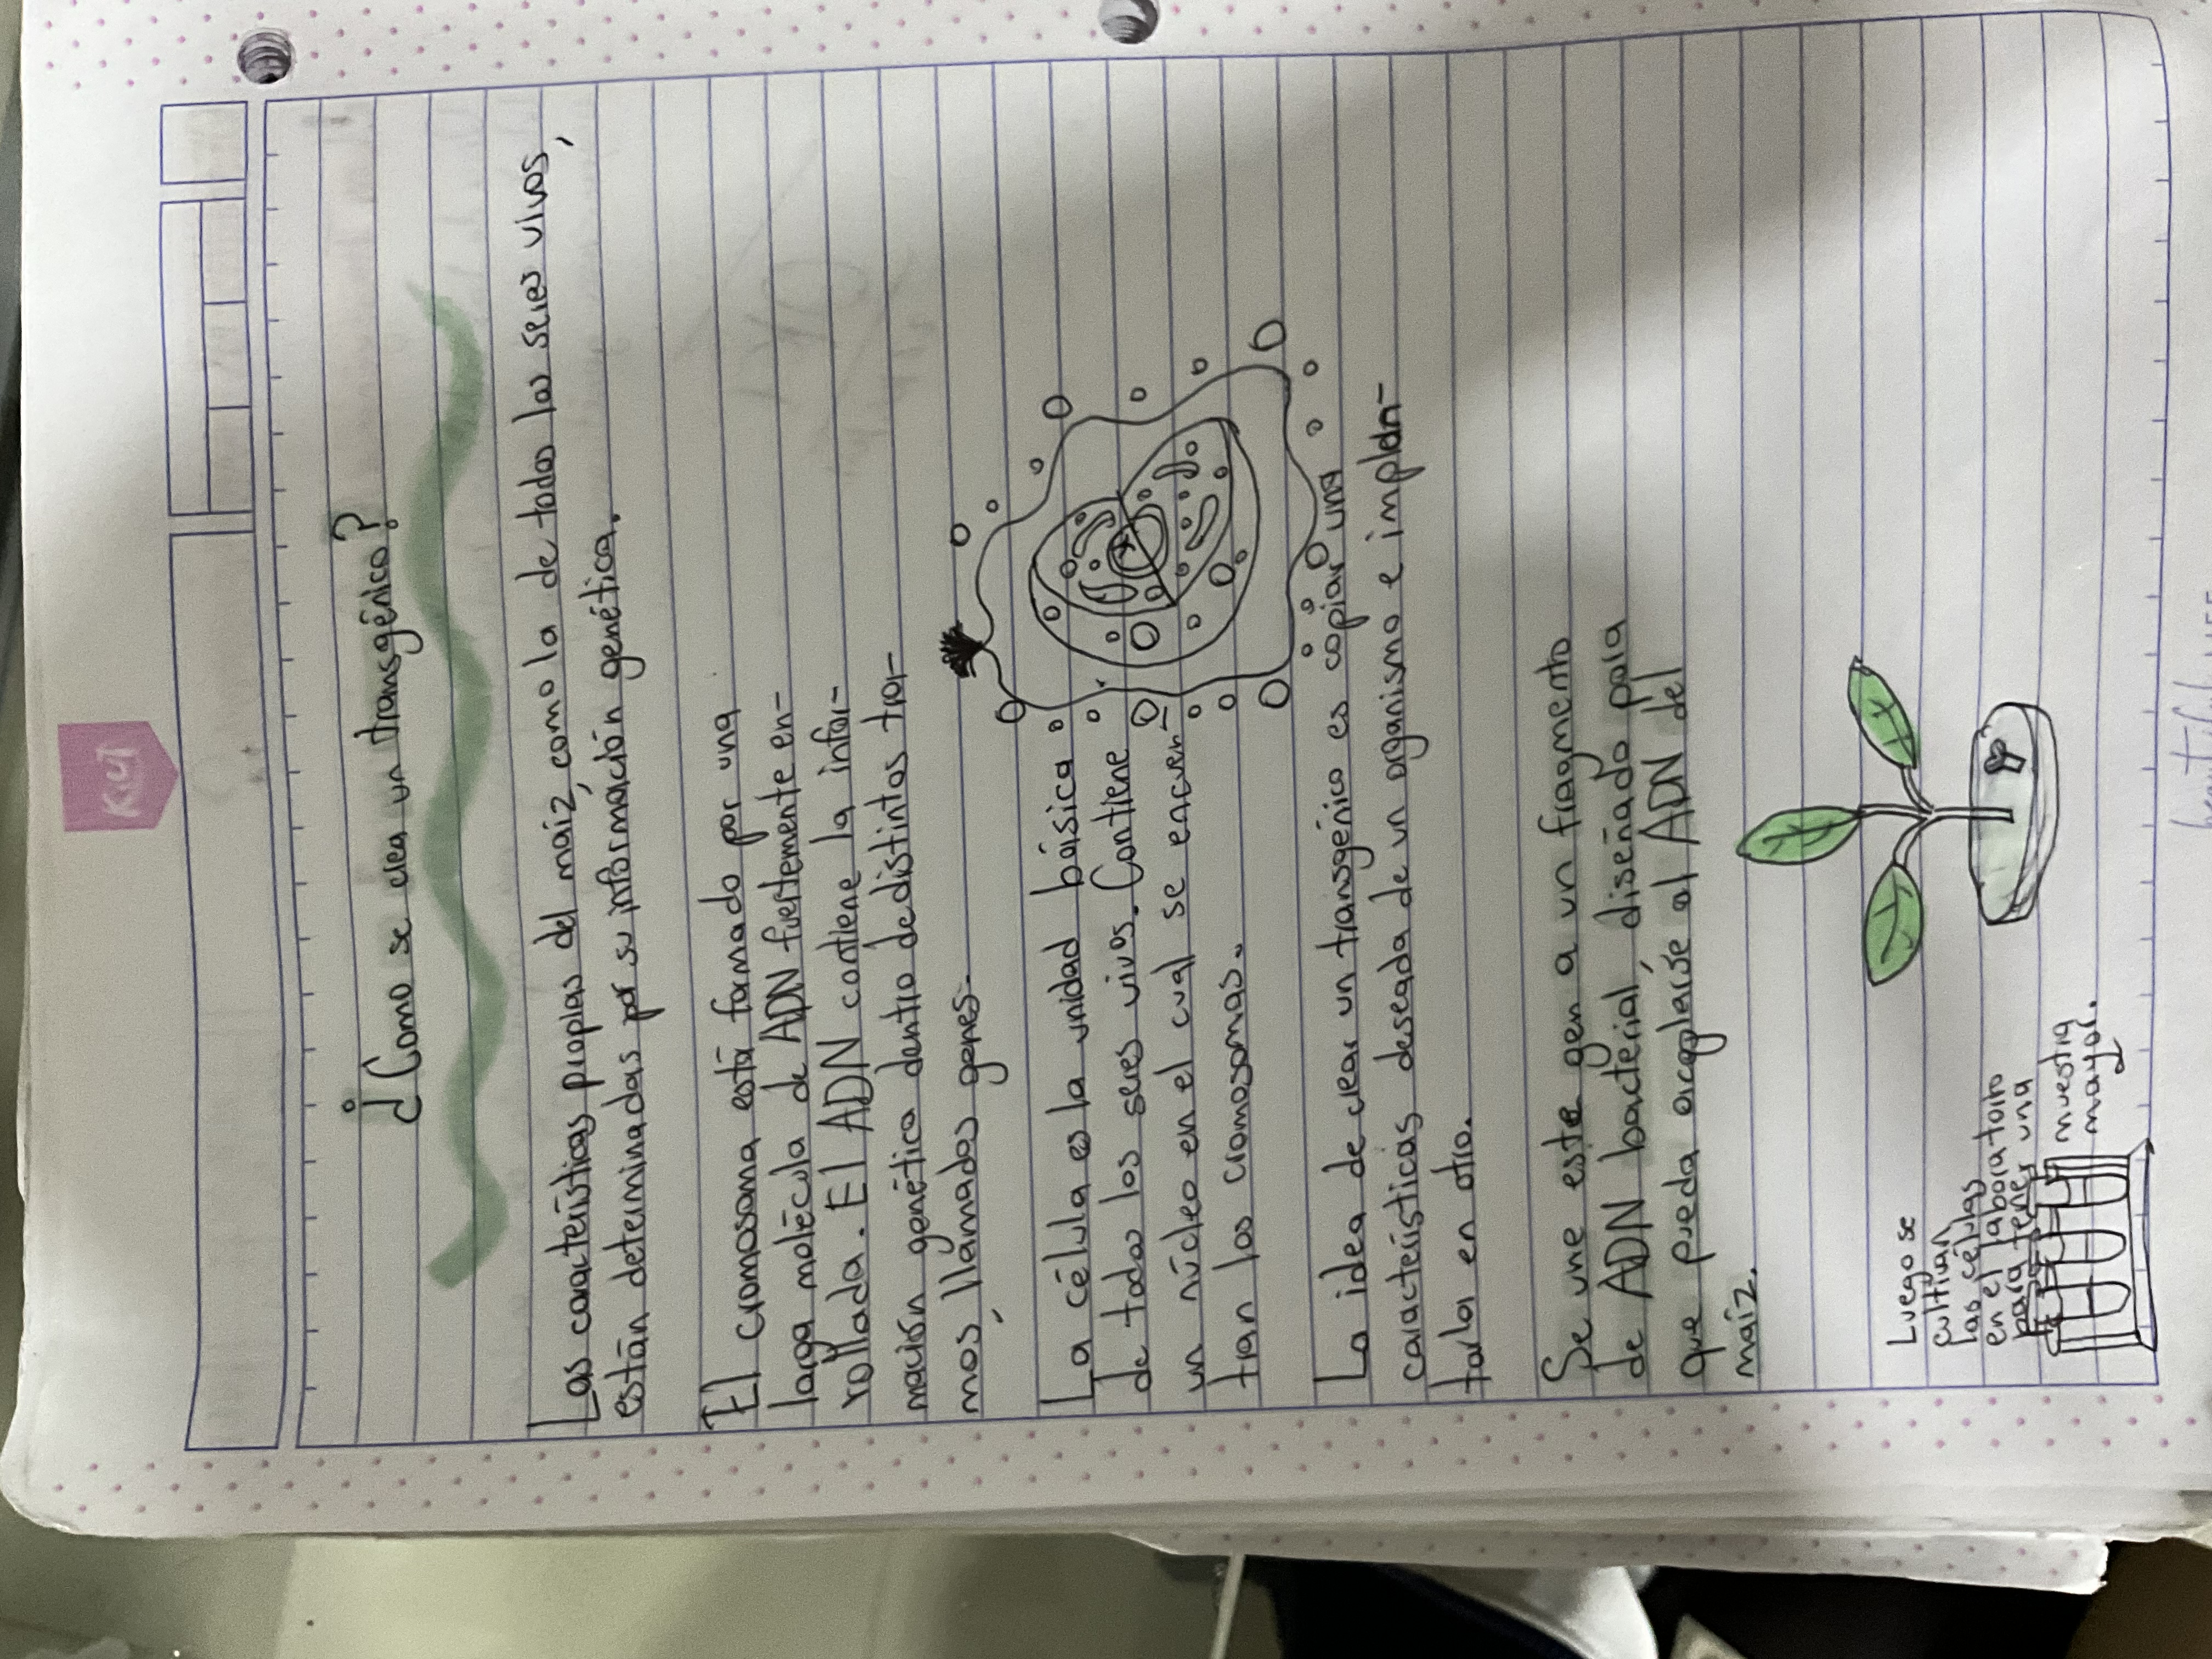 Kiut
¿Como se crea un transgénico?
Las características propias del maíz, como la de todos los seres vivos,
están determinadas por su información genética.
El cromosoma está formado por una
larga molécula de ADN fuertemente en-
rollada. El ADN contiene la infor-
mación genética dentro de distintos tra-
mos, llamados genes.
La célula es la unidad básica
de todos los seres vivos. Contiene
un núcleo en el cual se encuen-
tran los cromosomas.
La idea de crear un transgénico es copiar una
características deseada de un organismo e implan-
tarla en otro.
Se une este gen a un fragmento
de ADN bacterial, diseñado para
que pueda acoplarse al ADN del
maíz.
Luego se
cultivan
las células
en el laboratorio
para tener una
muestra
mayor.